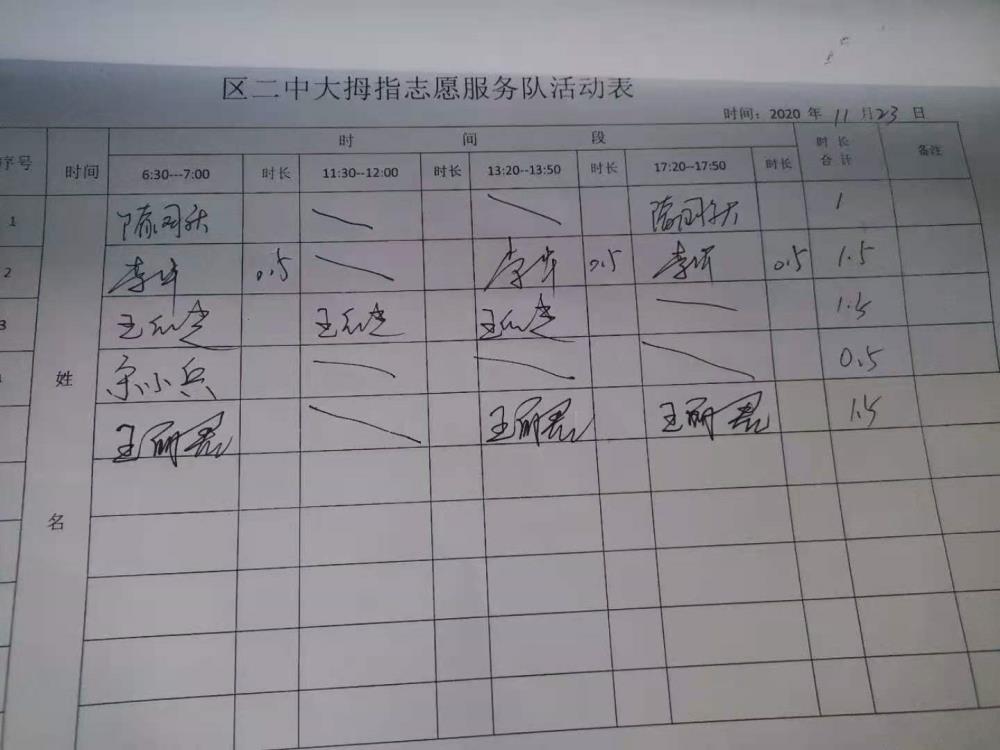 区二中大拇指志愿服务队活动表
时间：2020 年 11 月 23 日
序号 时间 时 间 段 时 长 合 计 备注
6:30---7:00 时长 11:30--12:00 时长 13:20--13:50 时长 17:20--17:50 时长
1 隋 1
2 李 0.5 李 0.5 李 0.5 1.5
3 王 王 王 1.5
姓 宗小兵 0.5
王丽君 王丽君 王丽君 1.5
名